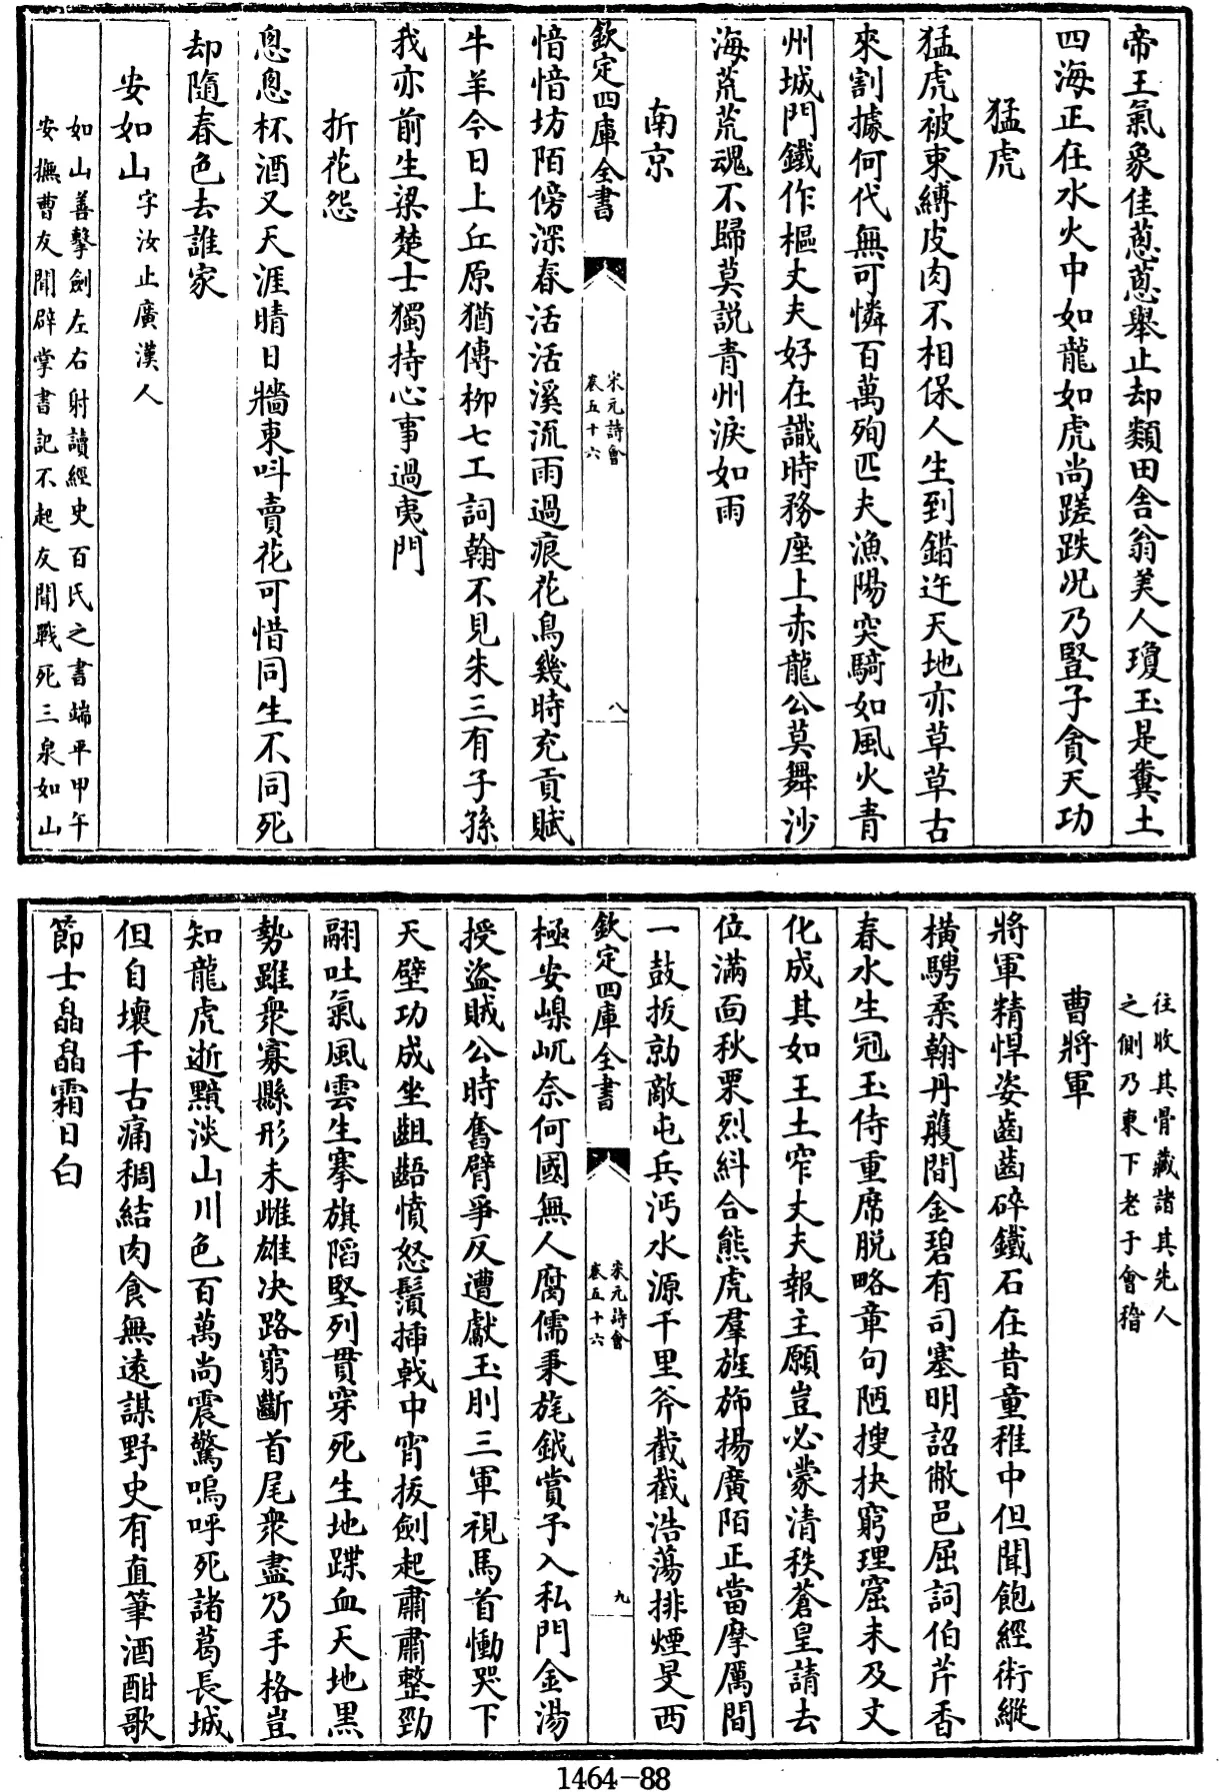 帝王氣象佳蔥蔥舉止却類田舍翁美人瓊玉是糞土
四海正在水火中如龍如虎尚蹉跌况乃豎子貪天功
猛虎
猛虎被束縛皮肉不相保人生到錯迕天地亦草草古
來割據何代無可憐百萬殉匹夫漁陽突騎如風火青
州城門鐵作樞丈夫好在識時務座上赤龍公莫舞沙
海荒荒魂不歸莫説青州淚如雨
南京
欽定四庫全書
宋元詩會
卷五十六
八
愔愔坊陌傍深春活活溪流雨過痕花鳥幾時充貢賦
牛羊今日上丘原猶傳柳七工詞翰不見朱三有子孫
我亦前生梁楚士獨持心事過夷門
折花怨
悤悤杯酒又天涯晴日牆東叫賣花可惜同生不同死
却隨春色去誰家
安如山字汝止廣漢人
如山善擊劍左右射讀經史百氏之書端平甲午
安撫曹友聞辟掌書記不起友聞戰死三泉如山
往收其骨藏諸其先人
之側乃東下老于會稽
曹將軍
將軍精悍姿齒齒碎鐵石在昔童稚中但聞飽經術縱
橫騁柔翰丹雘間金碧有司塞明詔撤邑屈詞伯芹香
春水生冠玉侍重席脱略章句陋搜抉窮理窟未及丈
化成其如王土窄丈夫報主願豈必蒙清秩蒼皇請去
位滿面秋栗烈糾合熊虎羣旌斾揚廣陌正當摩厲間
一鼓扳勍敵屯兵沔水源千里斧截截浩蕩排煙旻西
欽定四庫全書
宋元詩會
卷五十六
九
極安嵲屼奈何國無人腐儒秉旄鉞賞予入私門金湯
授盜賊公時奮臂爭反遭獻玉刖三軍視馬首慟哭下
天壁功成坐齟齬憤怒鬚插戟中宵拔劍起肅肅整勁
翮吐氣風雲生搴旗陷堅列貫穿死生地蹀血天地黑
勢雖衆寡縣形未雌雄决路窮斷首尾衆盡乃手格豈
知龍虎逝黯淡山川色百萬尚震驚嗚呼死諸葛長城
但自壞千古痛稠結肉食無遠謀野史有直筆酒酣歌
節士皛皛霜日白
1464-88